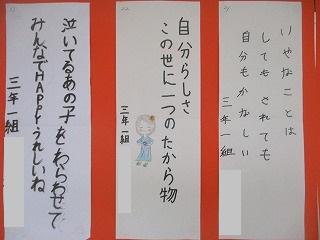 いやなことは
してもされても
自分もかなしい
三年一組
22
自分らしさ
この世に一つのたから物
三年一組
泣いてるあの子をわらわせて
みんなでHAPPYうれしいね
三年一組